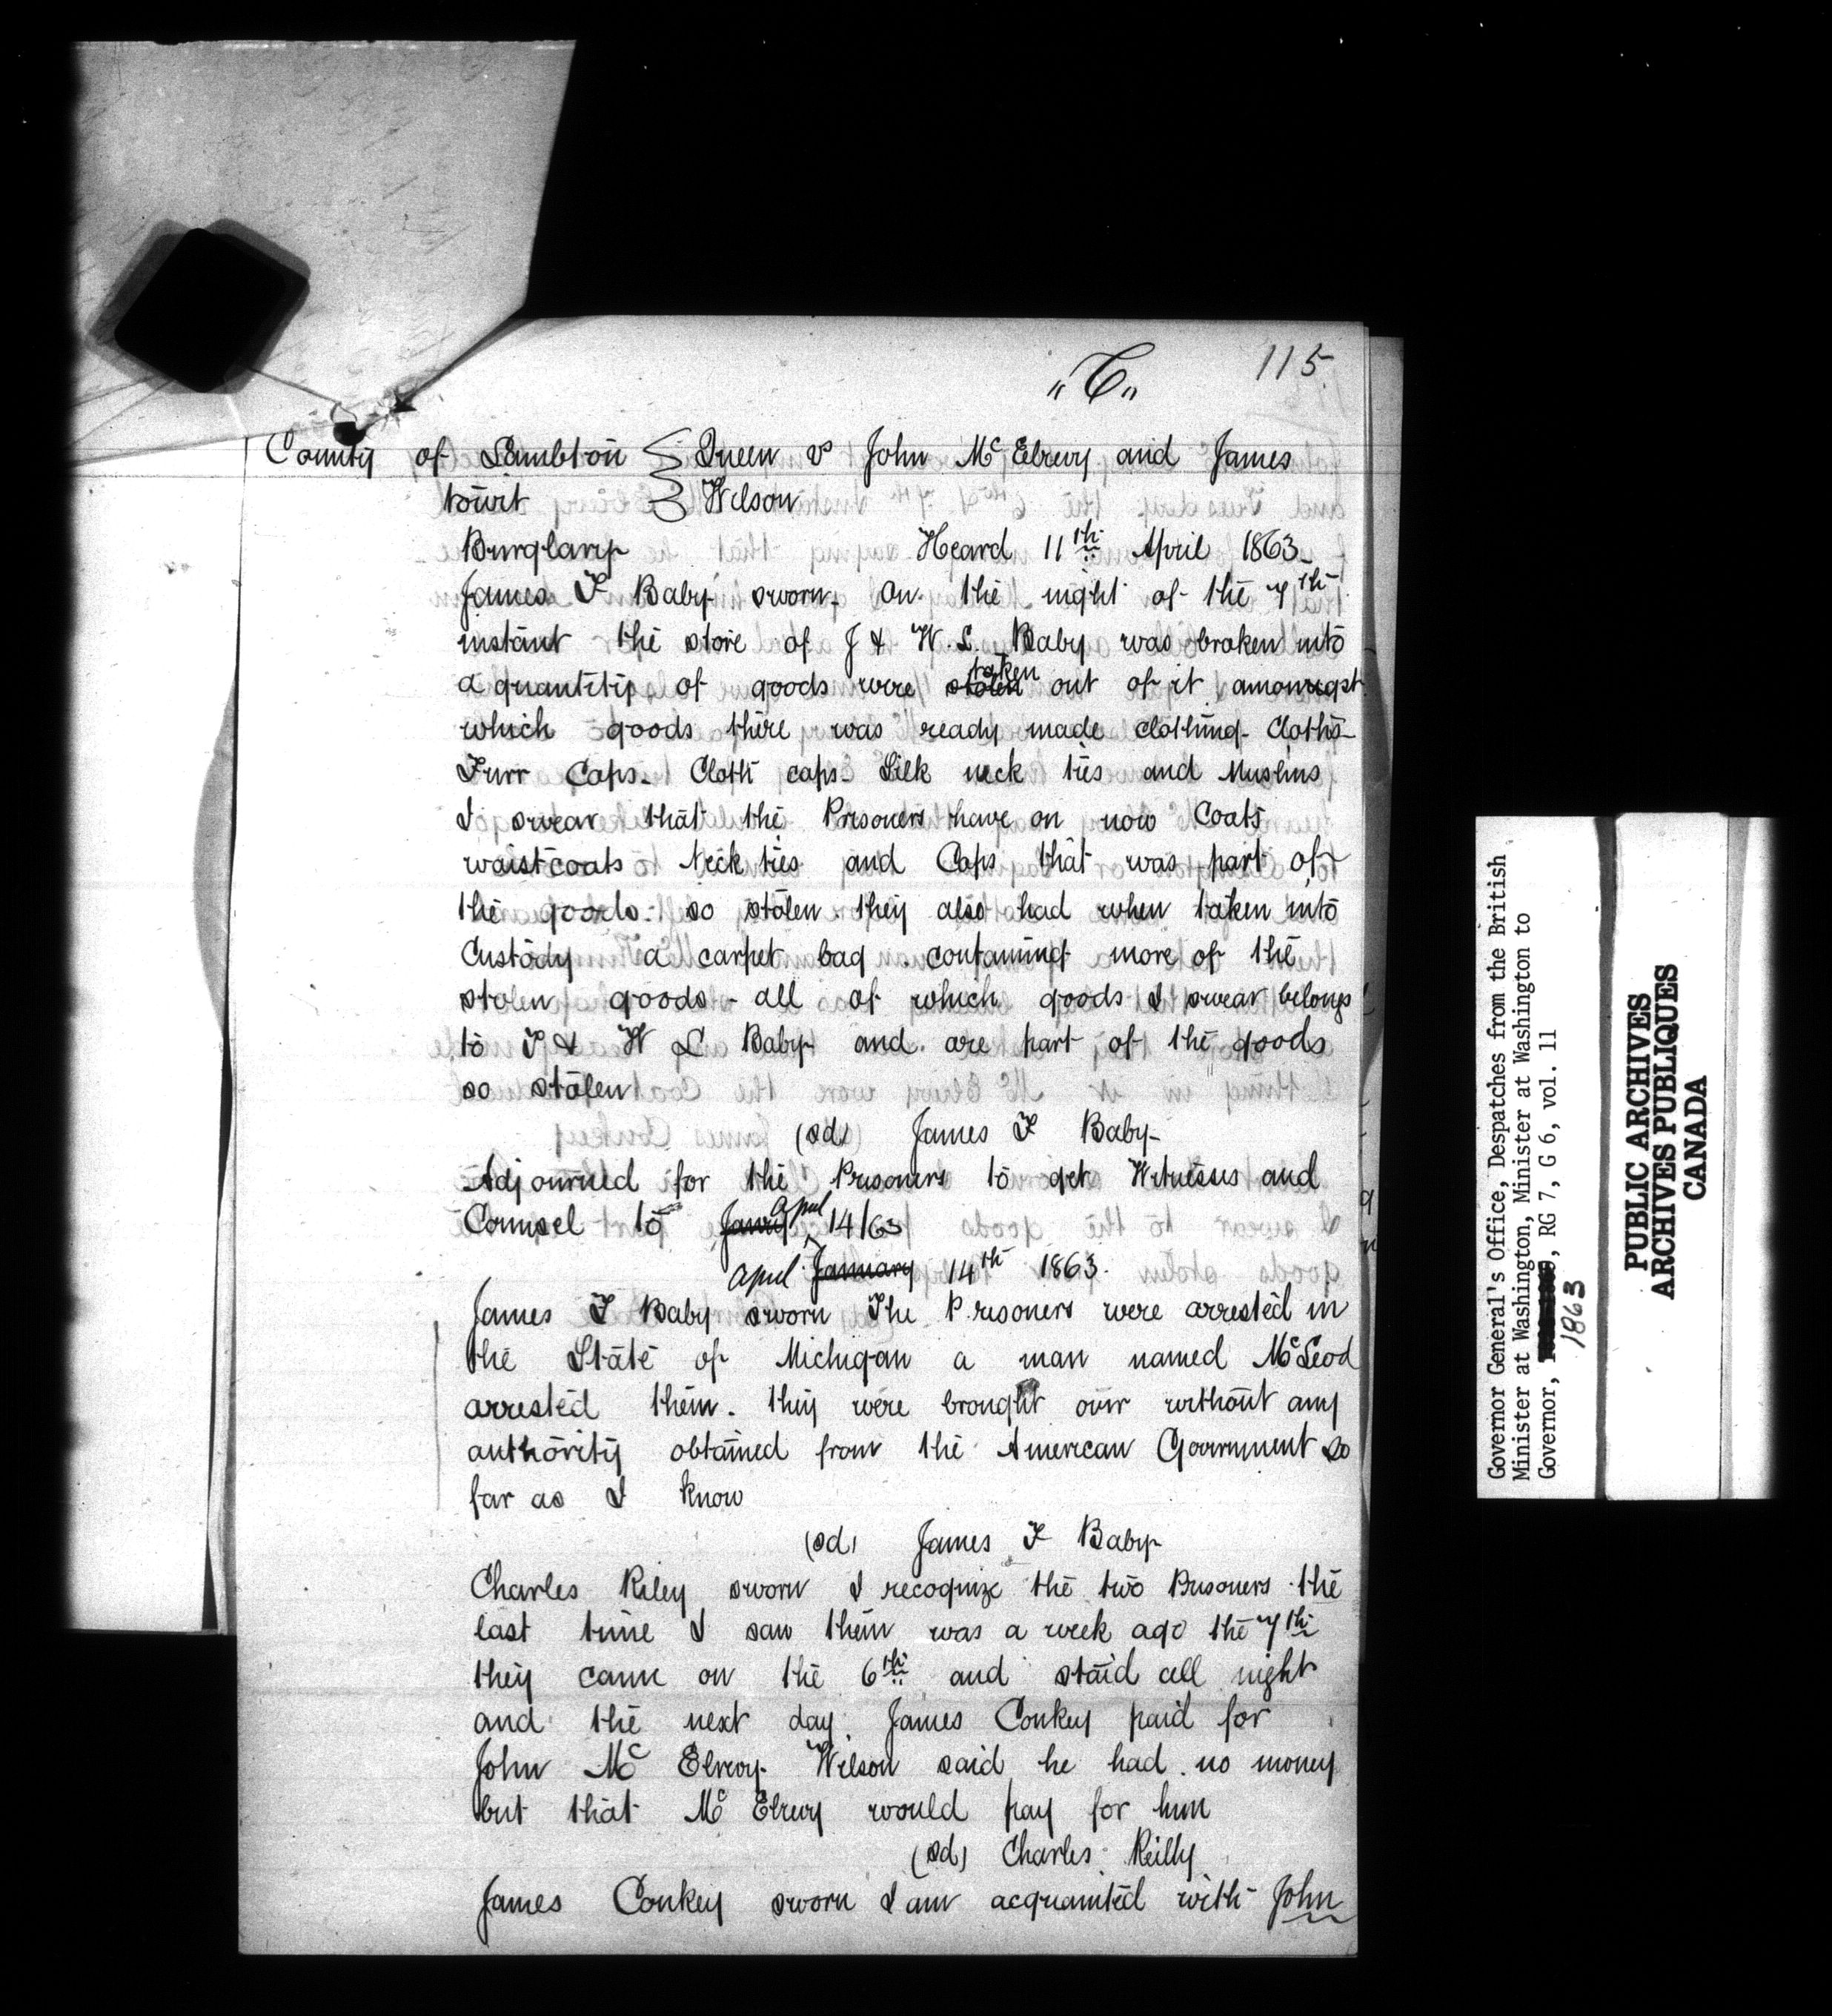 115
"C"
County of Lambton } Queen vs John McElrevy and James
towit } Wilson
Burglary Heard 11th April 1863
James F Baby sworn. On the night of the 7th
instant the store of J & W. L. Baby was broken into
a quantity of goods were stolen taken out of it amongst
which goods there was ready made clothing Cloths
Furr Caps. Cloth caps. Silk neck ties and Muslins
I swear that the Prisoners have on now Coats
waistcoats Neck ties and Caps that was part of
the goods so stolen. they also had when taken into
Custody a carpet bag containing more of the
stolen goods - all of which goods I swear belongs
to J & W L Baby and are part of the goods
so stolen
(sd) James F Baby
Adjourned for the Prisoners to get Witnesses and
Counsel to Jany april 14/63
april January 14th 1863.
James F Baby sworn The Prisoners were arrested in
the State of Michigan a man named McLeod
arrested them. they were brought over without any
authority obtained from the American Government so
far as I know
(sd) James F Baby
Charles Riley sworn I recognize the two Prisoners the
last time I saw them was a week ago the 7th
they came on the 6th and staid all night
and the next day. James Conkey paid for
John McElrevy. Wilson said he had no money
but that McElrevy would pay for him
(sd) Charles Reilly
James Conkey sworn I am acquainted with John
Governor General's Office, Despatches from the British
Minister at Washington, Minister at Washington to
Governor, RG 7, G 6, vol. 11
1863
PUBLIC ARCHIVES
ARCHIVES PUBLIQUES
CANADA